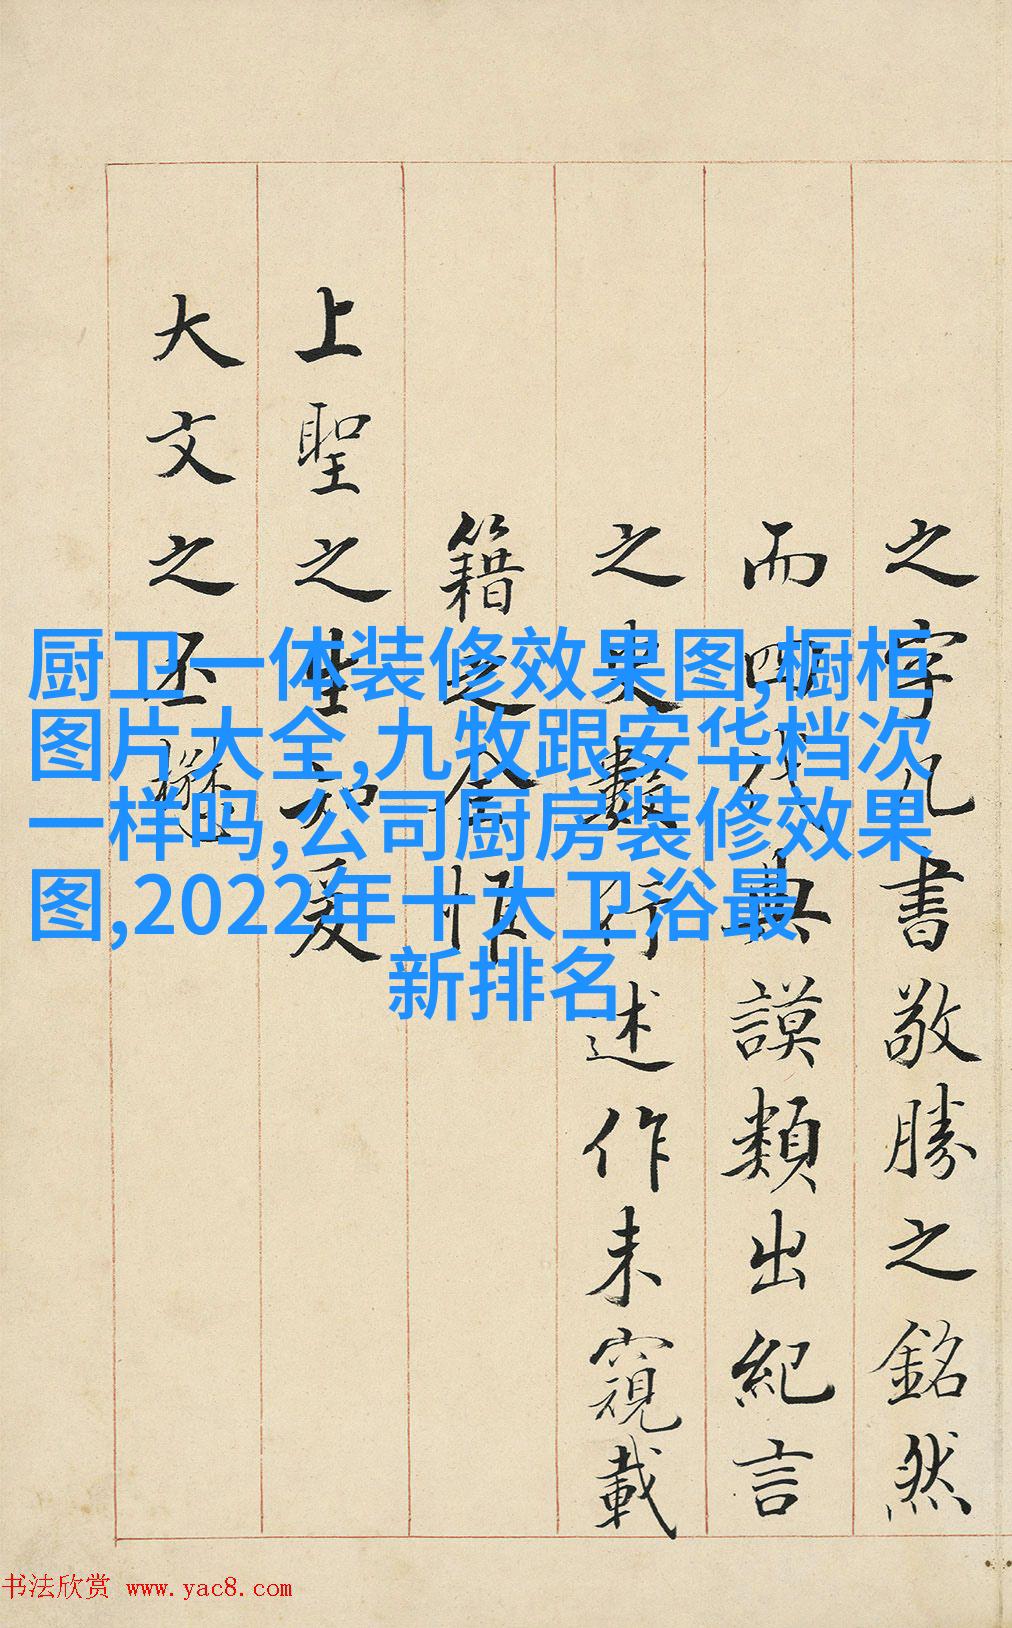 之字書敬勝之銘然
而四代典謨類出紀言
之史數行述作未窺載
籍之全
上聖之生知爰
大文之丕
厨卫一体装修效果图,橱柜
图片大全,九牧跟安华档次
一样吗,公司厨房装修效果
图,2022年十大卫浴最
新排名
书法欣赏 www.yac8.com